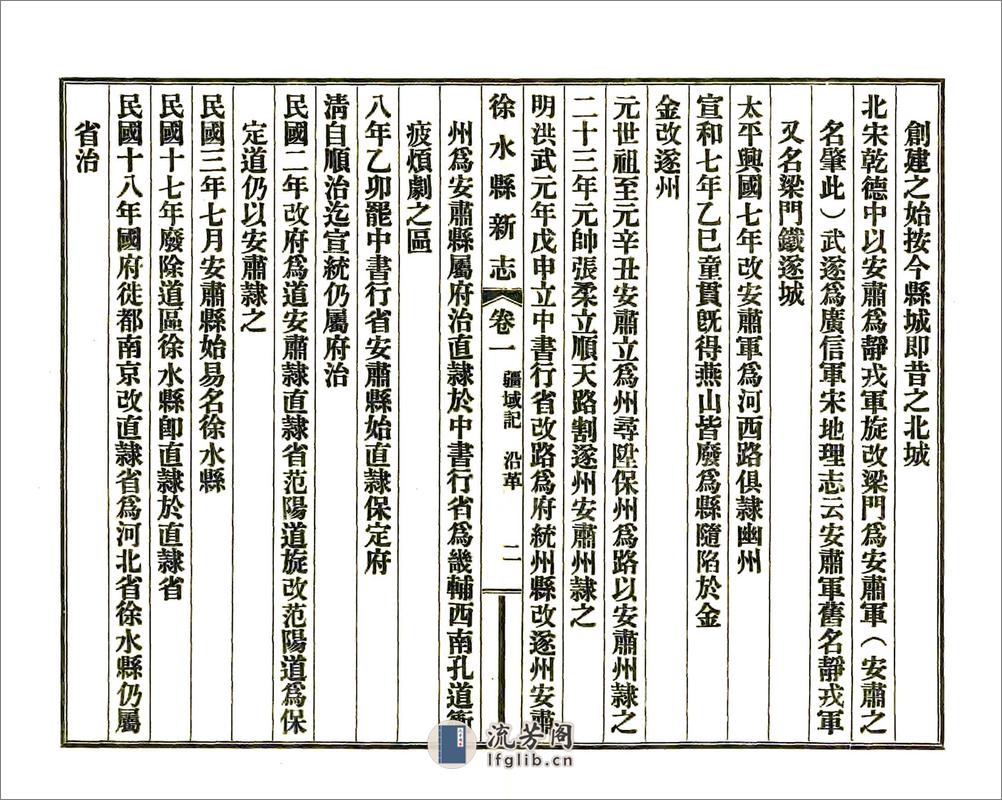 創建之始按今縣城即昔之北城
北宋乾德中以安肅爲靜戎軍旋改梁門爲安肅軍（安肅之
名肇此）武遂爲廣信軍宋地理志云安肅軍舊名靜戎軍
又名梁門鐵遂城
太平興國七年改安肅軍爲河西路俱隸幽州
宣和七年乙巳童貫旣得燕山皆廢爲縣隨陷於金
金改遂州
元世祖至元辛丑安肅立爲州尋陞保州爲路以安肅州隸之
二十三年元帥張柔立順天路割遂州安肅州隸之
明洪武元年戊申立中書行省改路爲府統州縣改遂州安肅
徐水縣新志 卷一 疆域記 沿革 二
州爲安肅縣屬府治直隸於中書行省爲畿輔西南孔道衝
疲煩劇之區
八年乙卯罷中書行省安肅縣始直隸保定府
淸自順治迄宣統仍屬府治
民國二年改府爲道安肅隸直隸省范陽道旋改范陽道爲保
定道仍以安肅隸之
民國三年七月安肅縣始易名徐水縣
民國十七年廢除道區徐水縣卽直隸於直隸省
民國十八年國府徙都南京改直隸省爲河北省徐水縣仍屬
省治
流芳阁
lfglib.cn